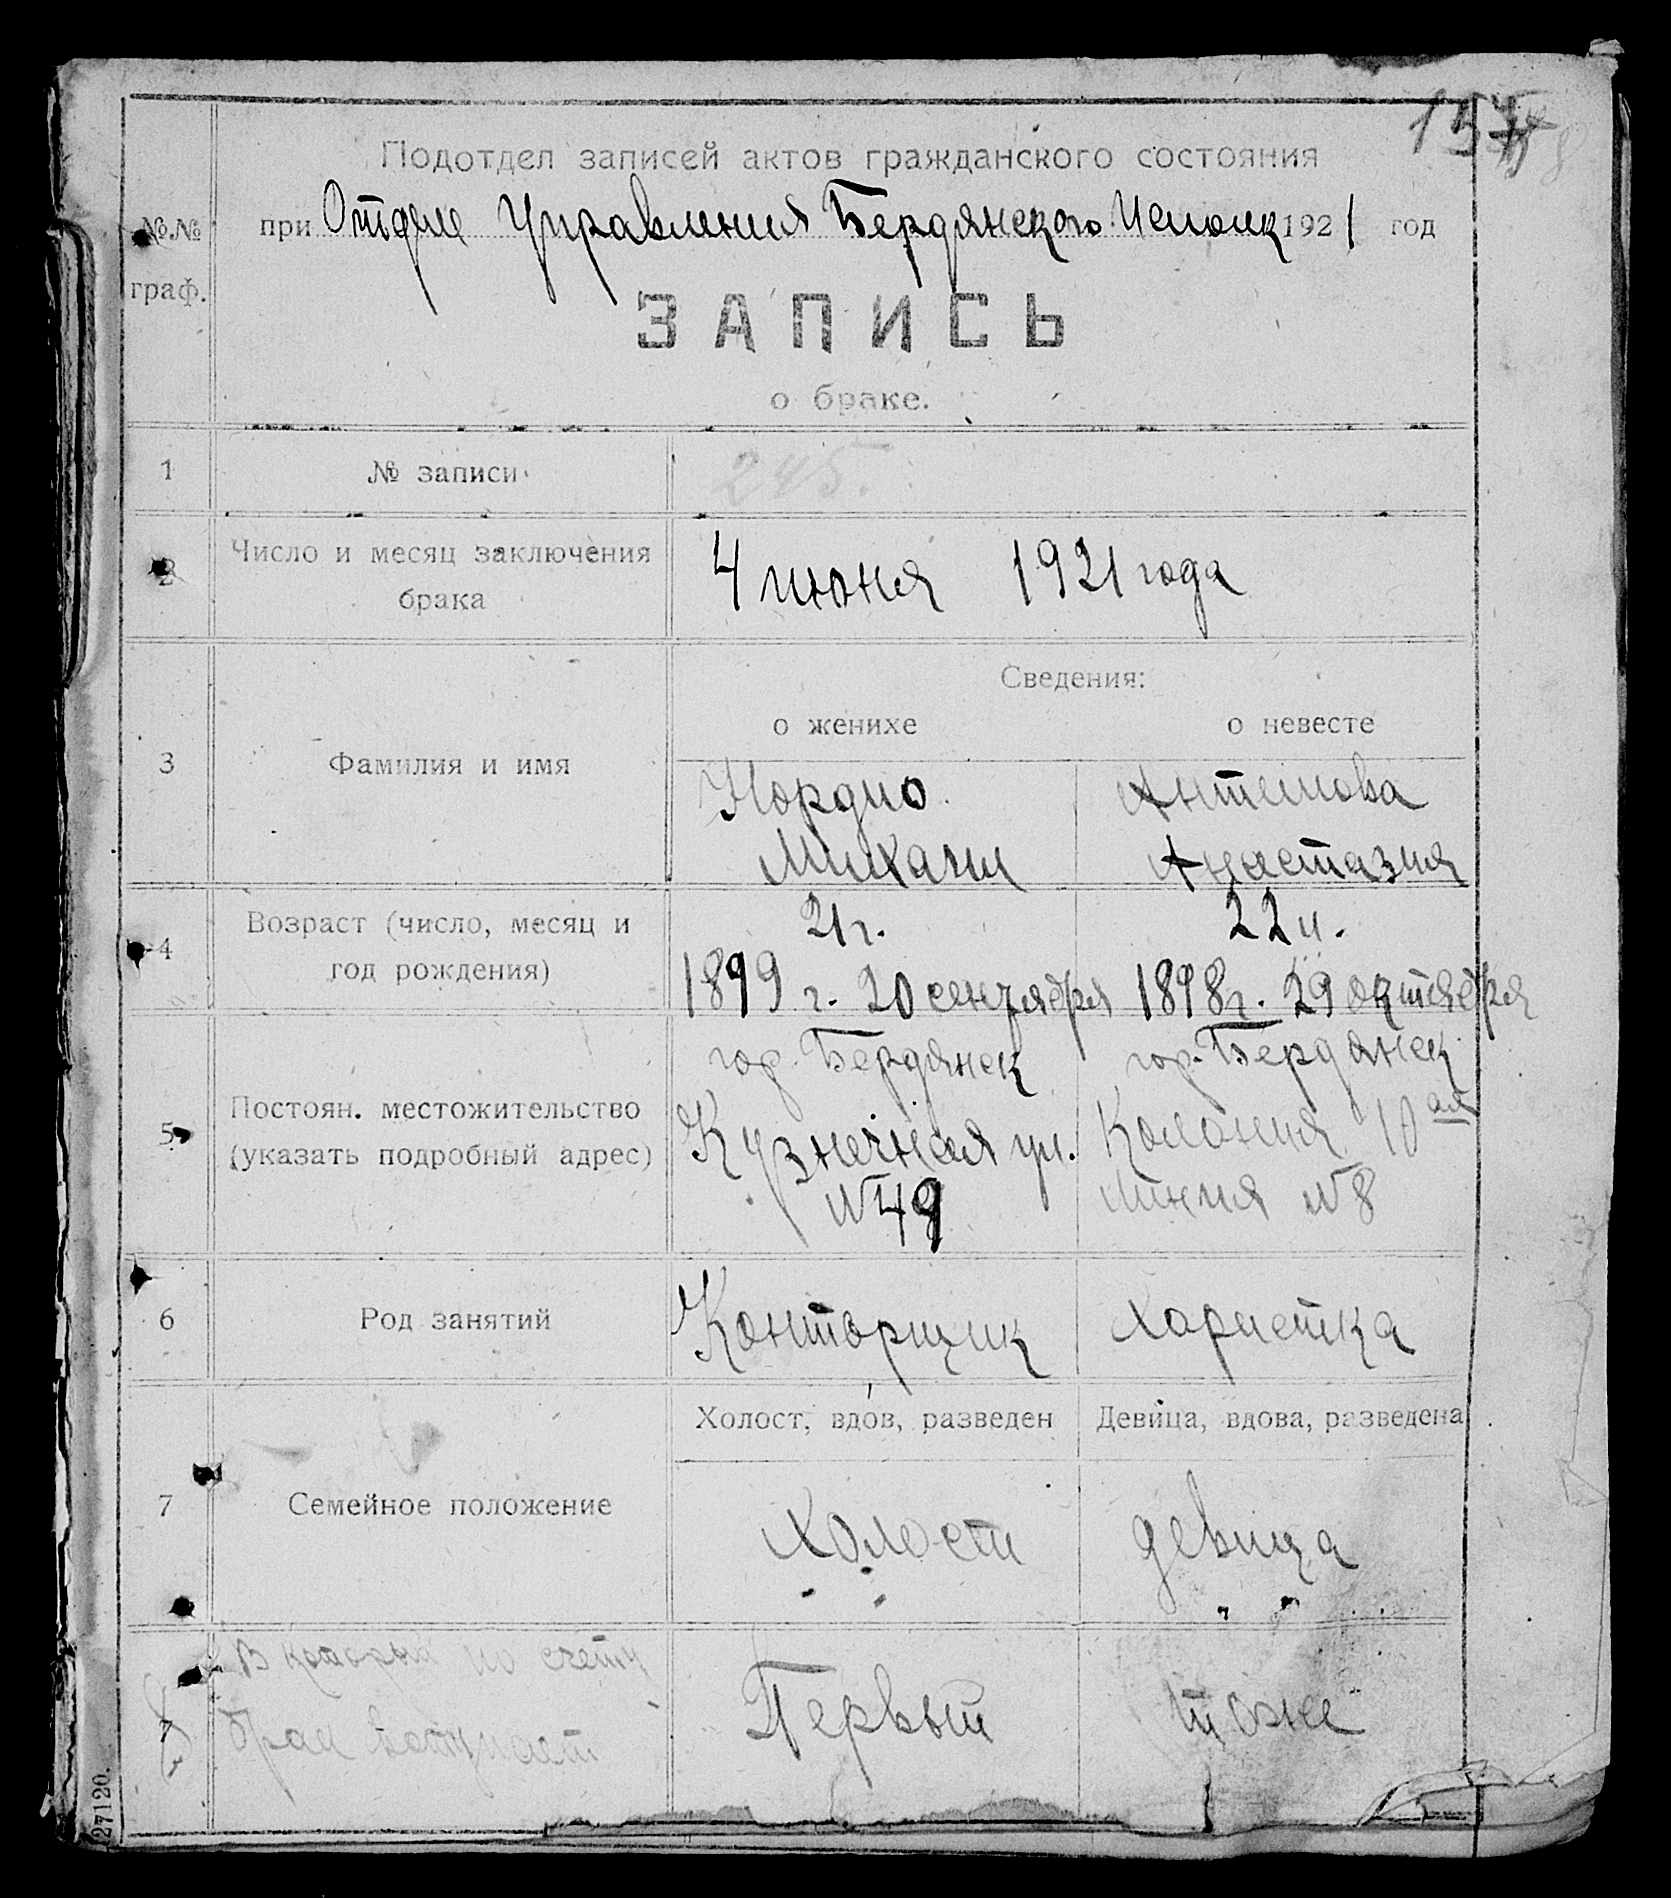 Подотдел записей актов гражданского состояния
№№ граф.
при Отделе Управления Бердянского Исполк 1921 год
ЗАПИСЬ
о браке.
1 № записи 245.
2 Число и месяц заключения брака
4 июня 1921 года
Сведения:
о женихе о невесте
3 Фамилия и имя
Нордио Антипова
Михаил Анастазия
4 Возраст (число, месяц и год рождения)
21 г. 22 л.
1899 г. 20 сентября 1898 г. 29 октября
5 Постоян. местожительство (указать подробный адрес)
гор. Бердянск гор. Бердянск
Кузнечная ул. Колония 10ая
№ 49 линия № 8
6 Род занятий
Конторщик Хористка
Холост, вдов, разведен Девица, вдова, разведена
7 Семейное положение
Холост девица
В который по счету
брак вступает
Первый тоже
27120.